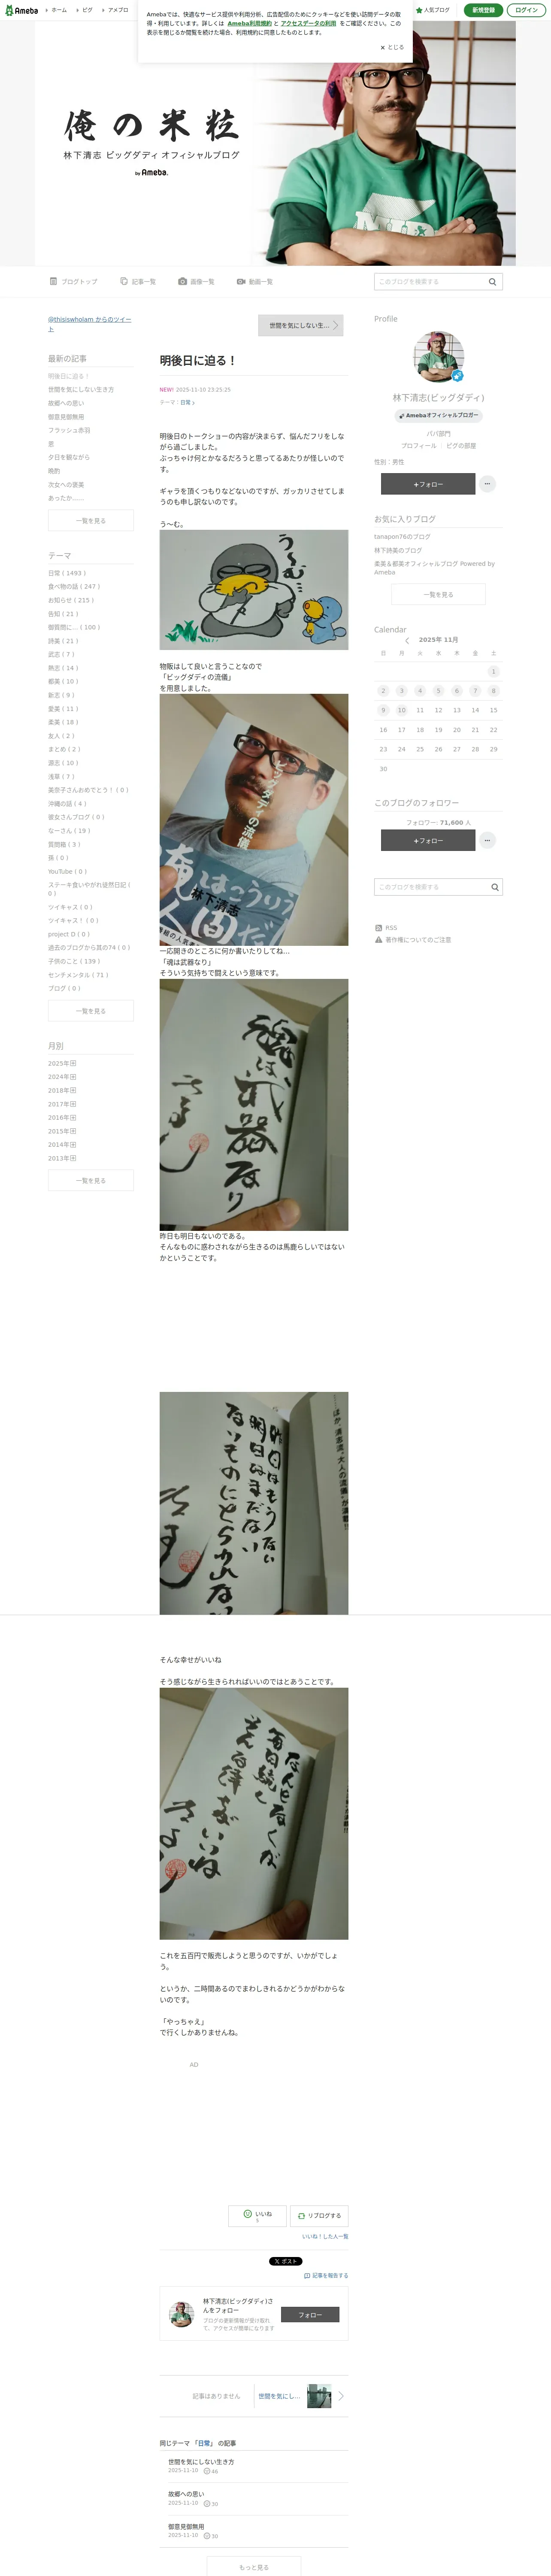 Ameba
ホーム
ピグ
アメブロ
人気ブログ
新規登録
ログイン
Amebaでは、快適なサービス提供や利用分析、広告配信のためにクッキーなどを使い訪問データの取得・利用しています。詳しくは Ameba利用規約 と アクセスデータの利用 をご確認ください。この表示を閉じるか閲覧を続けた場合、利用規約に同意したものとします。
× とじる
俺の米粒
林下清志 ビッグダディ オフィシャルブログ
by Ameba.
ブログトップ
記事一覧
画像一覧
動画一覧
このブログを検索する
@thisiswhoIam からのツイート
最新の記事
明後日に迫る！
世間を気にしない生き方
故郷への思い
御意見御無用
フラッシュ赤羽
恋
夕日を観ながら
晩酌
次女への褒美
あったか……
一覧を見る
テーマ
日常 ( 1493 )
食べ物の話 ( 247 )
お知らせ ( 215 )
告知 ( 21 )
御質問に… ( 100 )
詩美 ( 21 )
武志 ( 7 )
熱志 ( 14 )
都美 ( 10 )
新志 ( 9 )
愛美 ( 11 )
柔美 ( 18 )
友人 ( 2 )
まとめ ( 2 )
源志 ( 10 )
浅草 ( 7 )
美奈子さんおめでとう！ ( 0 )
沖縄の話 ( 4 )
彼女さんブログ ( 0 )
なーさん ( 19 )
質問箱 ( 3 )
孫 ( 0 )
YouTube ( 0 )
ステーキ食いやがれ徒然日記 ( 0 )
ツイキャス ( 0 )
ツイキャス！ ( 0 )
project D ( 0 )
過去のブログから其の74 ( 0 )
子供のこと ( 139 )
センチメンタル ( 71 )
ブログ ( 0 )
一覧を見る
月別
2025年
2024年
2018年
2017年
2016年
2015年
2014年
2013年
一覧を見る
世間を気にしない生…
明後日に迫る！
NEW! 2025-11-10 23:25:25
テーマ：日常
明後日のトークショーの内容が決まらず、悩んだフリをしながら過ごしました。
ぶっちゃけ何とかなるだろうと思ってるあたりが怪しいのです。
ギャラを頂くつもりなどないのですが、ガッカリさせてしまうのも申し訳ないのです。
う〜む。
物販はして良いと言うことなので
「ビッグダディの流儀」
を用意しました。
ビッグダディの流儀
林下清志
一応開きのところに何か書いたりしてね…
「魂は武器なり」
そういう気持ちで闘えという意味です。
魂は武器なり
昨日も明日もないのである。
そんなものに惑わされながら生きるのは馬鹿らしいではないかということです。
昨日はもうない
明日はまだない
ないものにとらわれるな
そんな幸せがいいね
そう感じながら生きられればいいのではとあうことです。
これを五百円で販売しようと思うのですが、いかがでしょう。
というか、二時間あるのでまわしきれるかどうかがわからないのです。
「やっちゃえ」
で行くしかありませんね。
AD
いいね
5
リブログする
いいね！した人一覧
ポスト
記事を報告する
林下清志(ビッグダディ)さんをフォロー
ブログの更新情報が受け取れて、アクセスが簡単になります
フォロー
記事はありません
世間を気にし…
同じテーマ 「日常」 の記事
世間を気にしない生き方
2025-11-10 46
故郷への思い
2025-11-10 30
御意見御無用
2025-11-10 30
もっと見る
Profile
林下清志(ビッグダディ)
Amebaオフィシャルブロガー
パパ部門
プロフィール | ピグの部屋
性別：男性
+フォロー
お気に入りブログ
tanapon76のブログ
林下詩美のブログ
柔美＆都美オフィシャルブログ Powered by Ameba
一覧を見る
Calendar
2025年 11月
日 月 火 水 木 金 土
1
2 3 4 5 6 7 8
9 10 11 12 13 14 15
16 17 18 19 20 21 22
23 24 25 26 27 28 29
30
このブログのフォロワー
フォロワー: 71,600 人
+フォロー
このブログを検索する
RSS
著作権についてのご注意